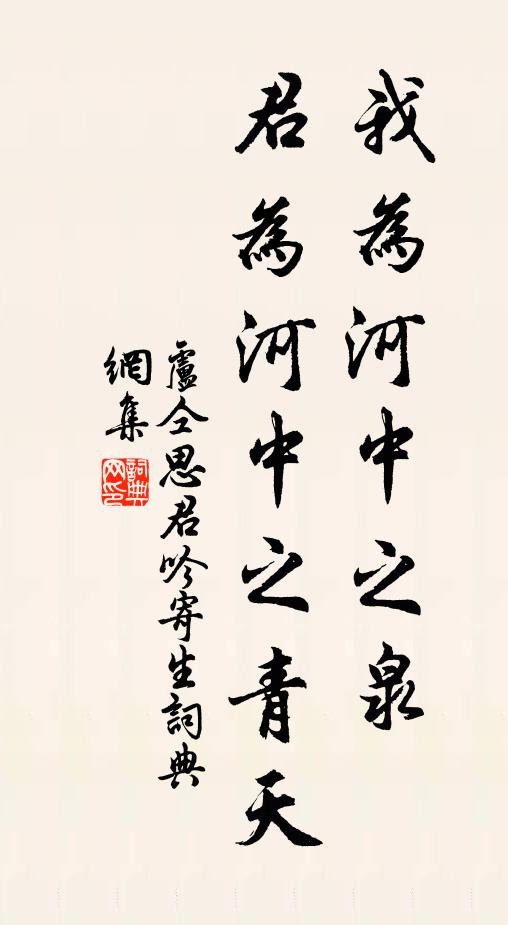 我為河中之泉
君為河中之青天
盧仝思君吟寄生詞典
網集
詞典網印